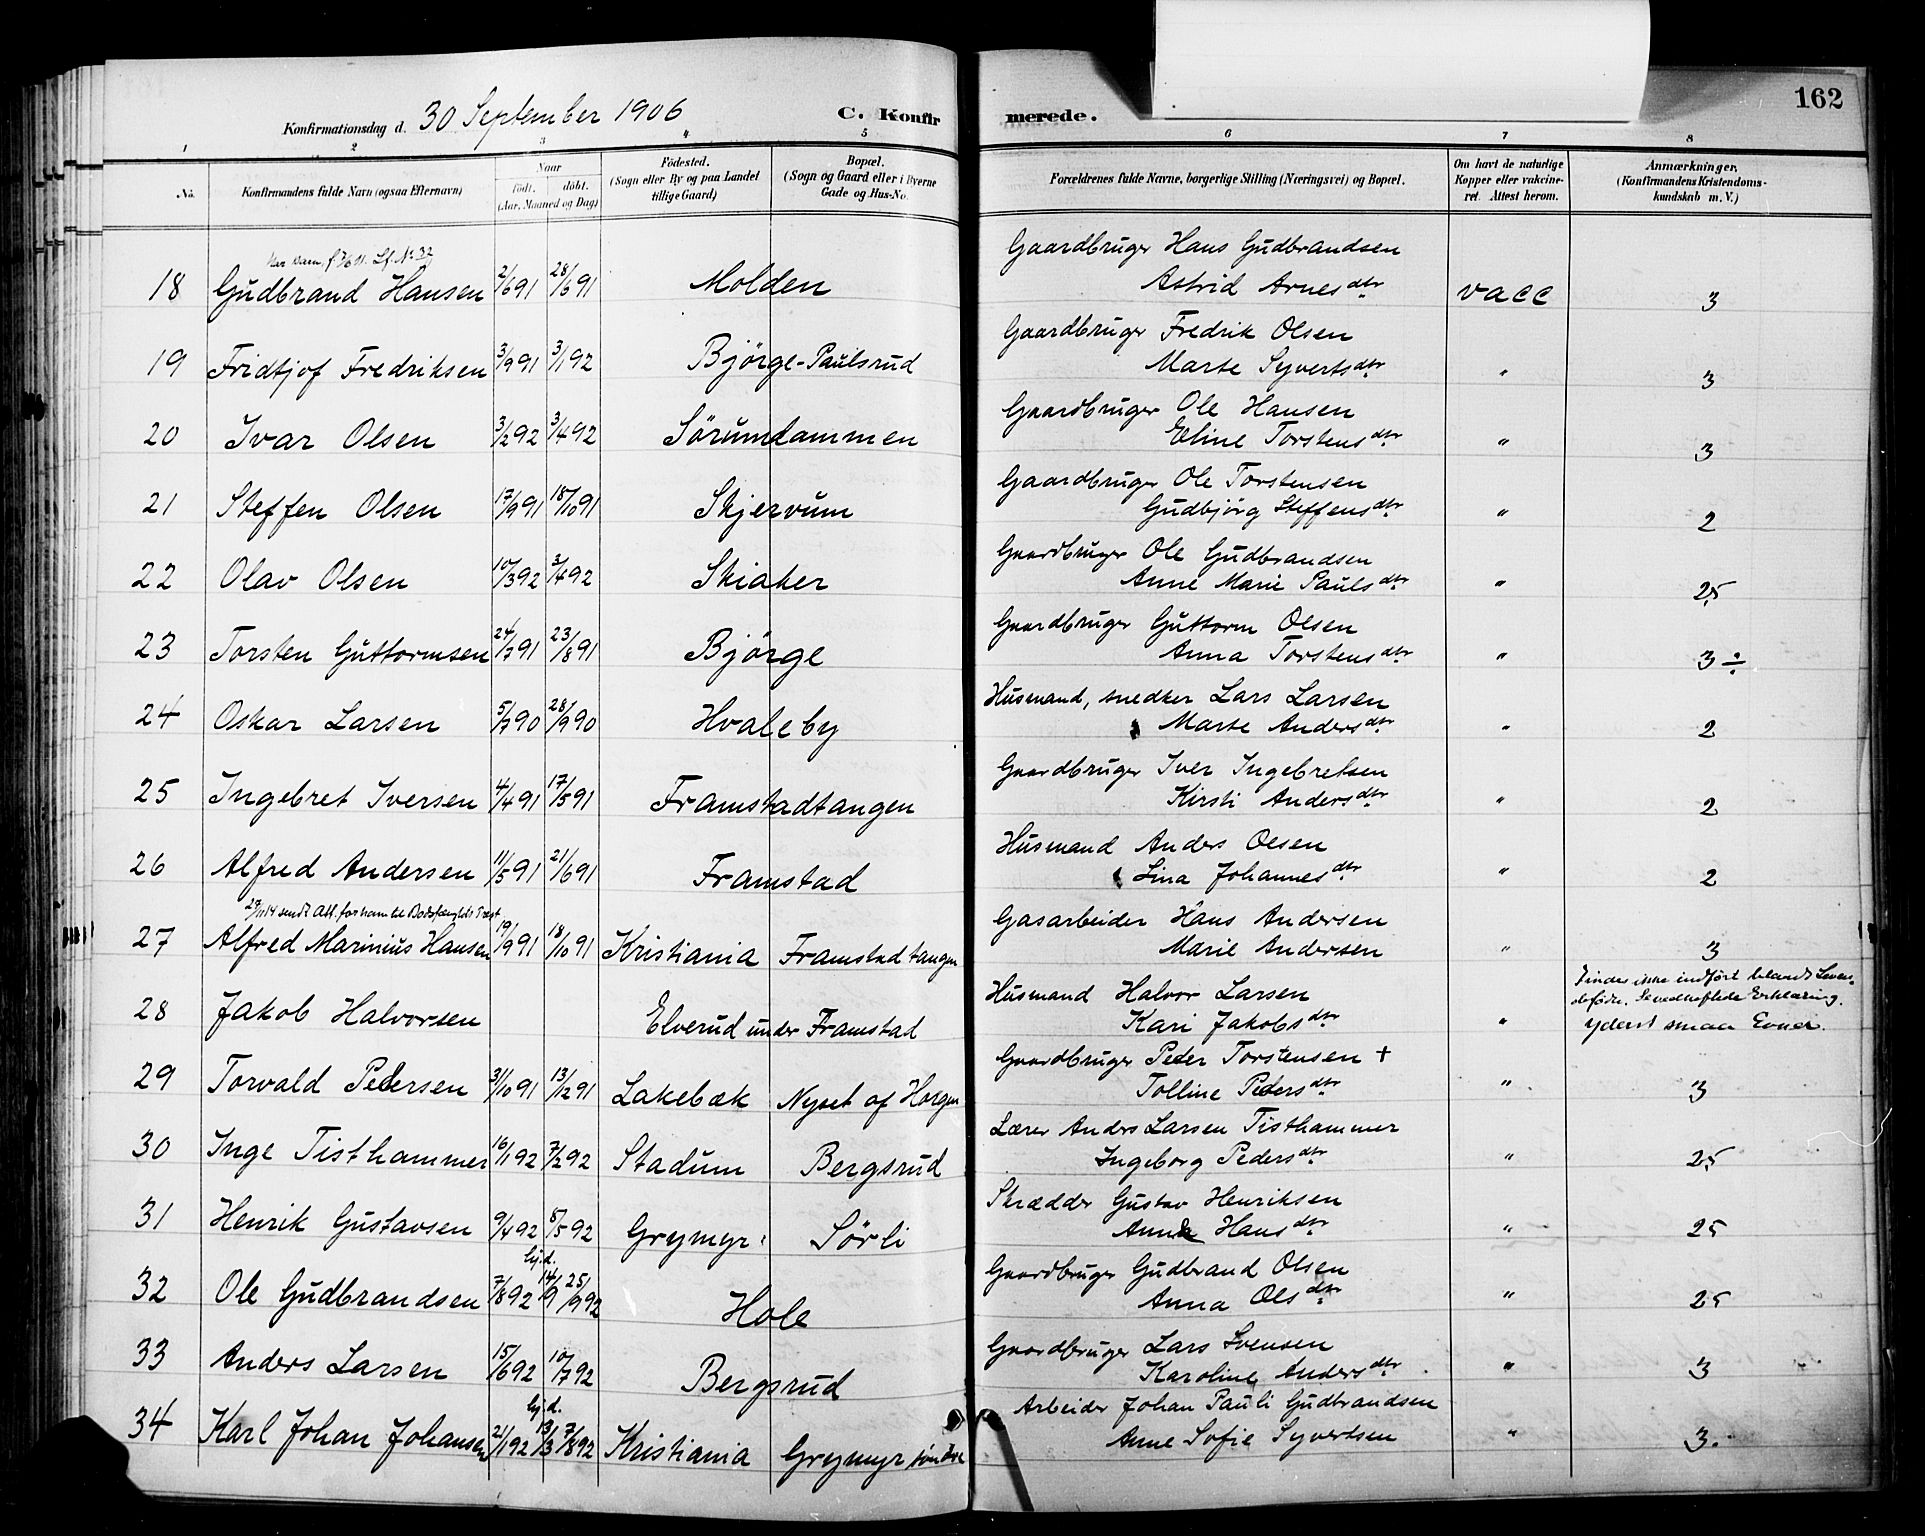 162
Konfirmationsdag d. 30 September 1906 C. Konfirmerede.
1 2 3 4 5 6 7 8
No. Konfirmandens fulde Navn (ogsaa Efternavn) Naar født. døbt. (Aar, Maaned og Dag) Fødested. (Sogn eller By og paa Landet tillige Gaard) Bopæl. (Sogn og Gaard eller i Byerne Gade og Hus-No. Forældrenes fulde Navne, borgerlige Stilling (Næringsvei) og Bopæl. Om havt de naturlige Kopper eller vakcineret. Attest herom. Anmærkninger, (Konfirmandens Kristendomskundskab m. V.)
Lf. No 32
18 Gudbrand Hansen 2/6 91 28/6 91 Molden Gaardbruger Hans Gudbrandsen
Astrid Arnesdtr vacc 3
19 Fridtjof Fredriksen 3/9 91 3/1 92 Bjørge-Paulsrud Gaardbruger Fredrik Olsen
Marte Syvertsdtr " 3
20 Ivar Olsen 3/2 92 3/4 92 Sørumdammen Gaardbruger Ole Hansen
Eline Torstensdtr " 3
21 Steffen Olsen 17/9 91 18/10 91 Skjervum Gaardbruger Ole Torstensen
Gudbjørg Steffensdtr " 2
22 Olav Olsen 10/3 92 3/4 92 Skiaker Gaardbruger Ole Gudbrandsen
Anne Marie Paulsdtr " 2,5
23 Torsten Guttormsen 24/7 91 23/8 91 Bjørge Gaardbruger Guttorm Olsen
Anna Torstensdtr " 3 ÷
24 Oskar Larsen 5/7 90 28/9 90 Hvaleby Husmand, snedker Lars Larsen
Marte Andersdtr " 2
25 Ingebret Iversen 4/4 91 17/5 91 Framstadtangen Gaardbruger Iver Ingebretsen
Kirsti Andersdtr " 2
26 Alfred Andersen 11/5 91 21/6 91 Framstad Husmand Anders Olsen
Lina Johannesdtr " 2
sendt Att. for ham til Bodsfængslets Præst
27 Alfred Marinius Hansen 19/9 91 18/10 91 Kristiania Framstadtangen Gasarbeider Hans Andersen
Marie Andersen " 3
28 Jakob Halvorsen Elverud under Framstad Husmand Halvor Larsen
Kari Jakobsdtr " Findes ikke indført blandt Levendefødte. Se vedheftede Erklæring.
yderst smaa Evner.
29 Torvald Pedersen 31/10 91 13/12 91 Lakebæk Nyset af Horgen Gaardbruger Peder Torstensen +
Tolline Pedersdtr " 3
30 Inge Tisthammer 16/1 92 7/2 92 Stadum Bergsrud Lærer Anders Larsen Tisthammer
Ingeborg Pedersdtr " 2,5
31 Henrik Gustavsen 9/4 92 8/5 92 Grymyr Sørli Skrædder Gustav Henriksen
Anna Hansdtr " 2,5
hj.d.
32 Ole Gudbrandsen 7/8 92 14/9 25/9 92 Hole Gaardbruger Gudbrand Olsen
Anna Olsdtr " 2,5
33 Anders Larsen 15/6 92 10/7 92 Bergsrud Gaardbruger Lars Svensen
Karoline Andersdtr " 3
hj.d.
34 Karl Johan Johansen 21/1 92 13/3 7/8 92 Kristiania Grymyr søndre Arbeider Johan Pauli Gudbrandsen
Anne Sofie Syvertsen " 3.